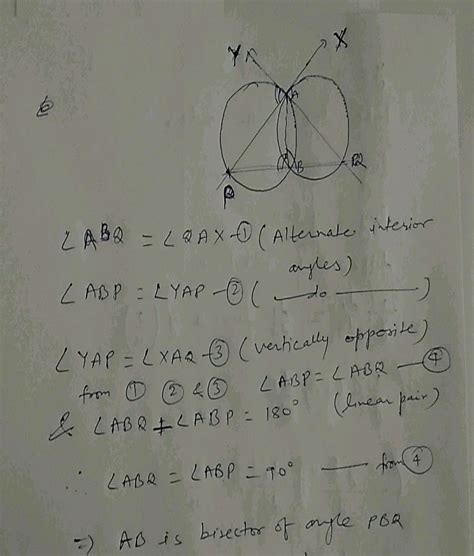 Y X
A
B Q
P
∠ABQ = ∠QAX -① (Alternate interior
angles)
∠ABP = ∠YAP -② ( — do — )
∠YAP = ∠XAQ -③ (vertically opposite)
from ① ② & ③ ∠ABP = ∠ABQ — ④
& ∠ABQ + ∠ABP = 180° (linear pair)
∴ ∠ABQ = ∠ABP = 90° — from ④
⇒ AB is bisector of angle PBQ